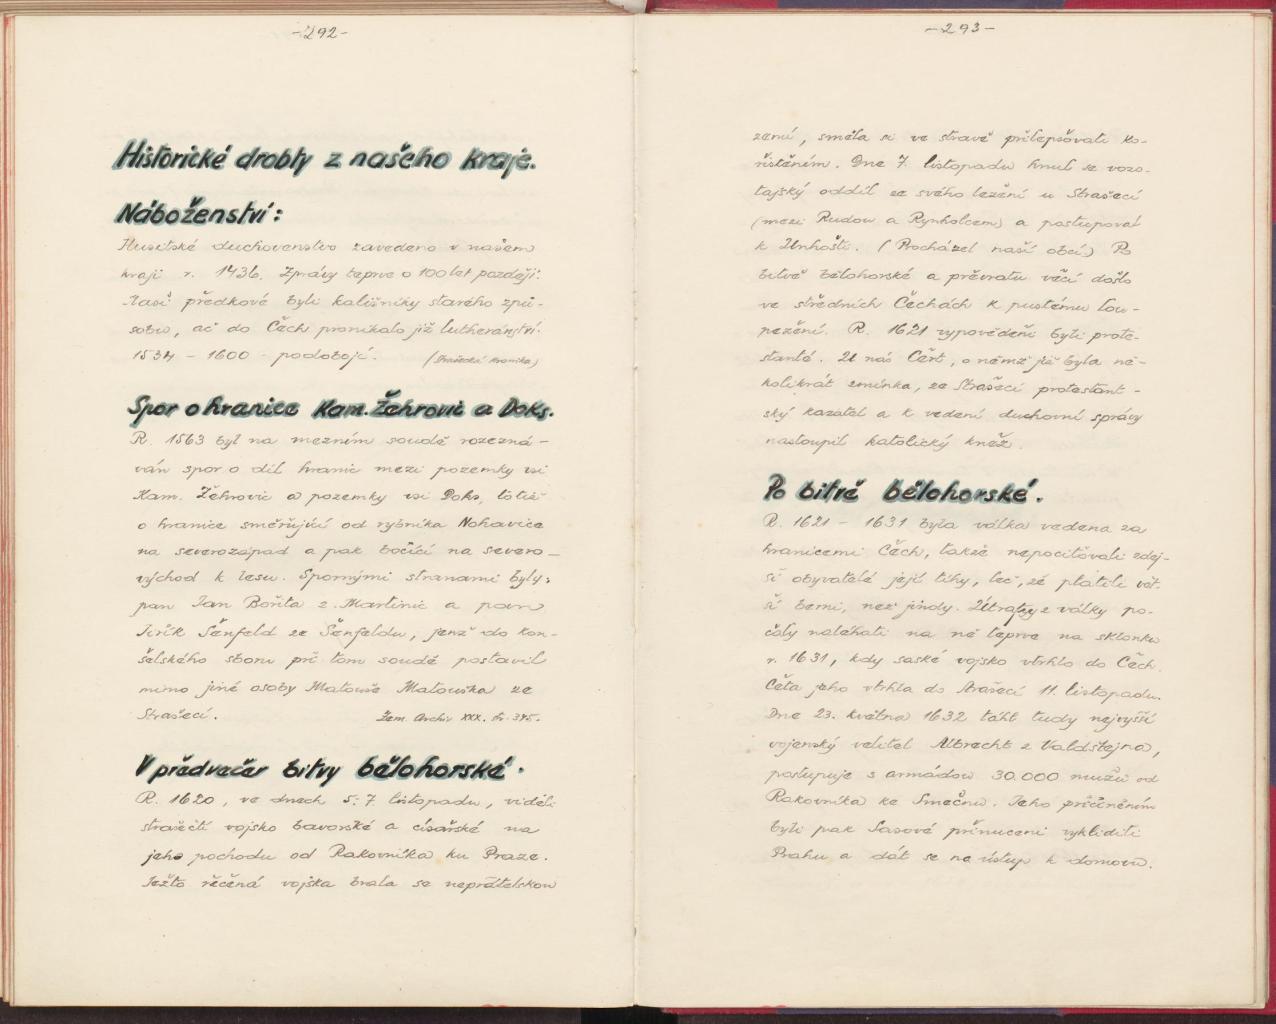 -292-
Historické drobty z našeho kraje.
Náboženství:
Husitské duchovenstvo zavedeno v našem
kraji r. 1436. Zprávy teprve o 100 let později.
Naši předkové byli kališníky starého způ-
sobu, ač do Čech pronikalo již lutheránství.
1534 - 1600 - podobojí. (Strašecká kronika)
Spor o hranice Kam. Žehrovic a Doks.
R. 1563 byl na mezním soudě rozezná-
ván spor o díl hranic mezi pozemky vsi
Kam. Žehrovic a pozemky vsi Doks, totiž
o hranice směřující od rybníka Nohavice
na severozápad a pak bočící na severo-
východ k lesu. Spornými stranami byly:
pan Jan Bořita z Martinic a pan
Jiřík Šenfeld ze Šenfeldu, jenž do kon-
šelského sboru při tom soudě postavil
mimo jiné osoby Matouše Matouška ze
Strašecí. Zem. Archiv XXX. str. 345.
V předvečer bitvy bělohorské.
R. 1620, ve dnech 5.-7. listopadu, viděli
strašečtí vojsko bavorské a císařské na
jeho pochodu od Rakovníka ku Praze.
Ježto řečená vojska brala se nepřátelskou
-293-
zemí, směla si ve stravě přilepšovati ko-
řistěním. Dne 7. listopadu hnul se vozo-
tajský oddíl ze svého ležení u Strašecí
(mezi Rudou a Rynholcem) a postupoval
k Unhošti. (Procházel naší obcí) Po
bitvě bělohorské a převratu věcí došlo
ve středních Čechách k pustému lou-
pežení. R. 1621 vypověděni byli prote-
stanté. Z nás Čért, o němž již byla ně-
kolikrát zmínka, ze Strašecí protestant-
ský kazatel a k vedení duchovní správy
nastoupil katolický kněz.
Po bitvě bělohorské.
R. 1621 - 1631 byla válka vedena za
hranicemi Čech, takže nepociťovali zdej-
ší obyvatelé její tíhy, leč, že platili vět-
ší berni, než jindy. Útrapy z války po-
čaly naléhati na ně teprve na sklonku
r. 1631, kdy saské vojsko vtrhlo do Čech.
Četa jeho vtrhla do Strašecí 11. listopadu.
Dne 23. května 1632 táhl tudy nejvyšší
vojenský velitel Albrecht z Valdštejna,
postupuje s armádou 30.000 mužů od
Rakovníka ke Smečnu. Jeho přičiněním
byli pak Sasové přinuceni vykliditi
Prahu a dát se na ústup k domovu.